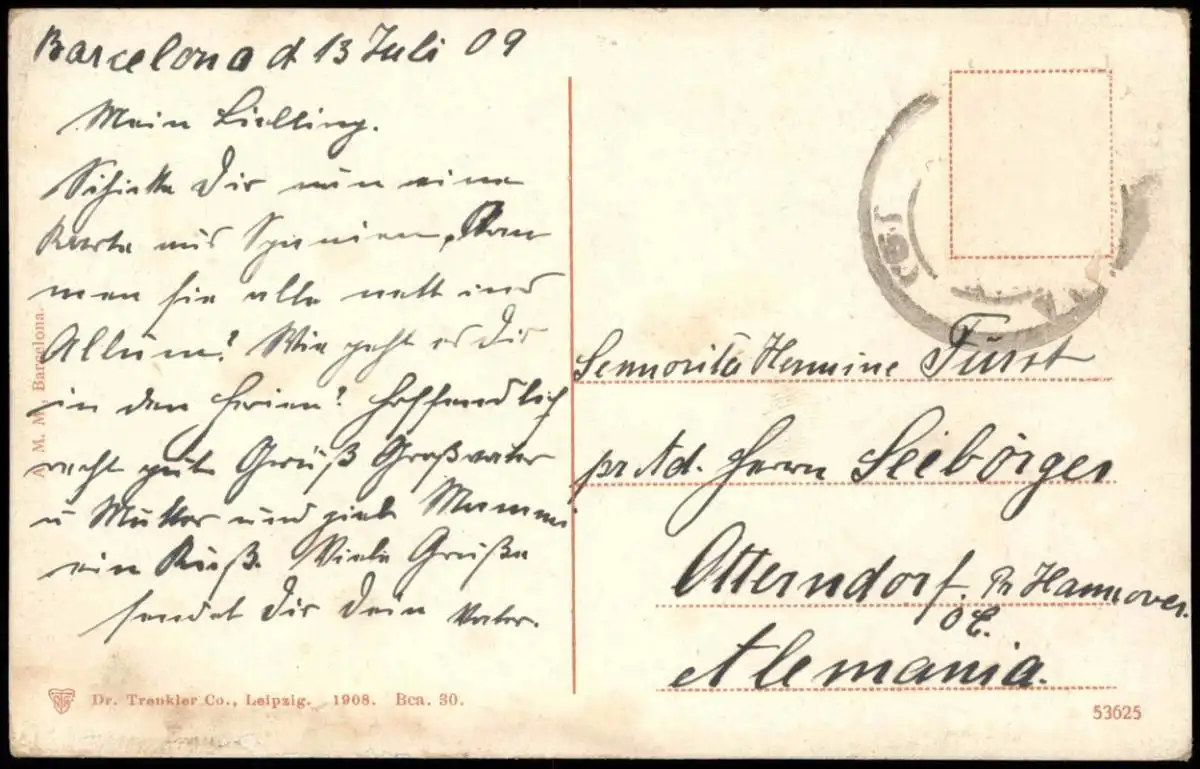 Barcelona d 13 Juli 09
Mein Liebling.
Schicke Dir nun eine
Karte aus Spanien,
men sie alle nett und
Wie geht es Dir
in den Ferien? Hoffendlich
recht gut Grüß Großvater
u Mutter und gieb Mamma
ein Kuß. Viele Grüße
sendet Dir Dein Vater.
A. M. M. Barcelona.
Dr. Trenkler Co., Leipzig. 1908. Bca. 30.
Sennorita Hermine Fürst
pr Ad. Herrn Seebörger
Otterndorf. Pr Hannover.
Alemania.
53625